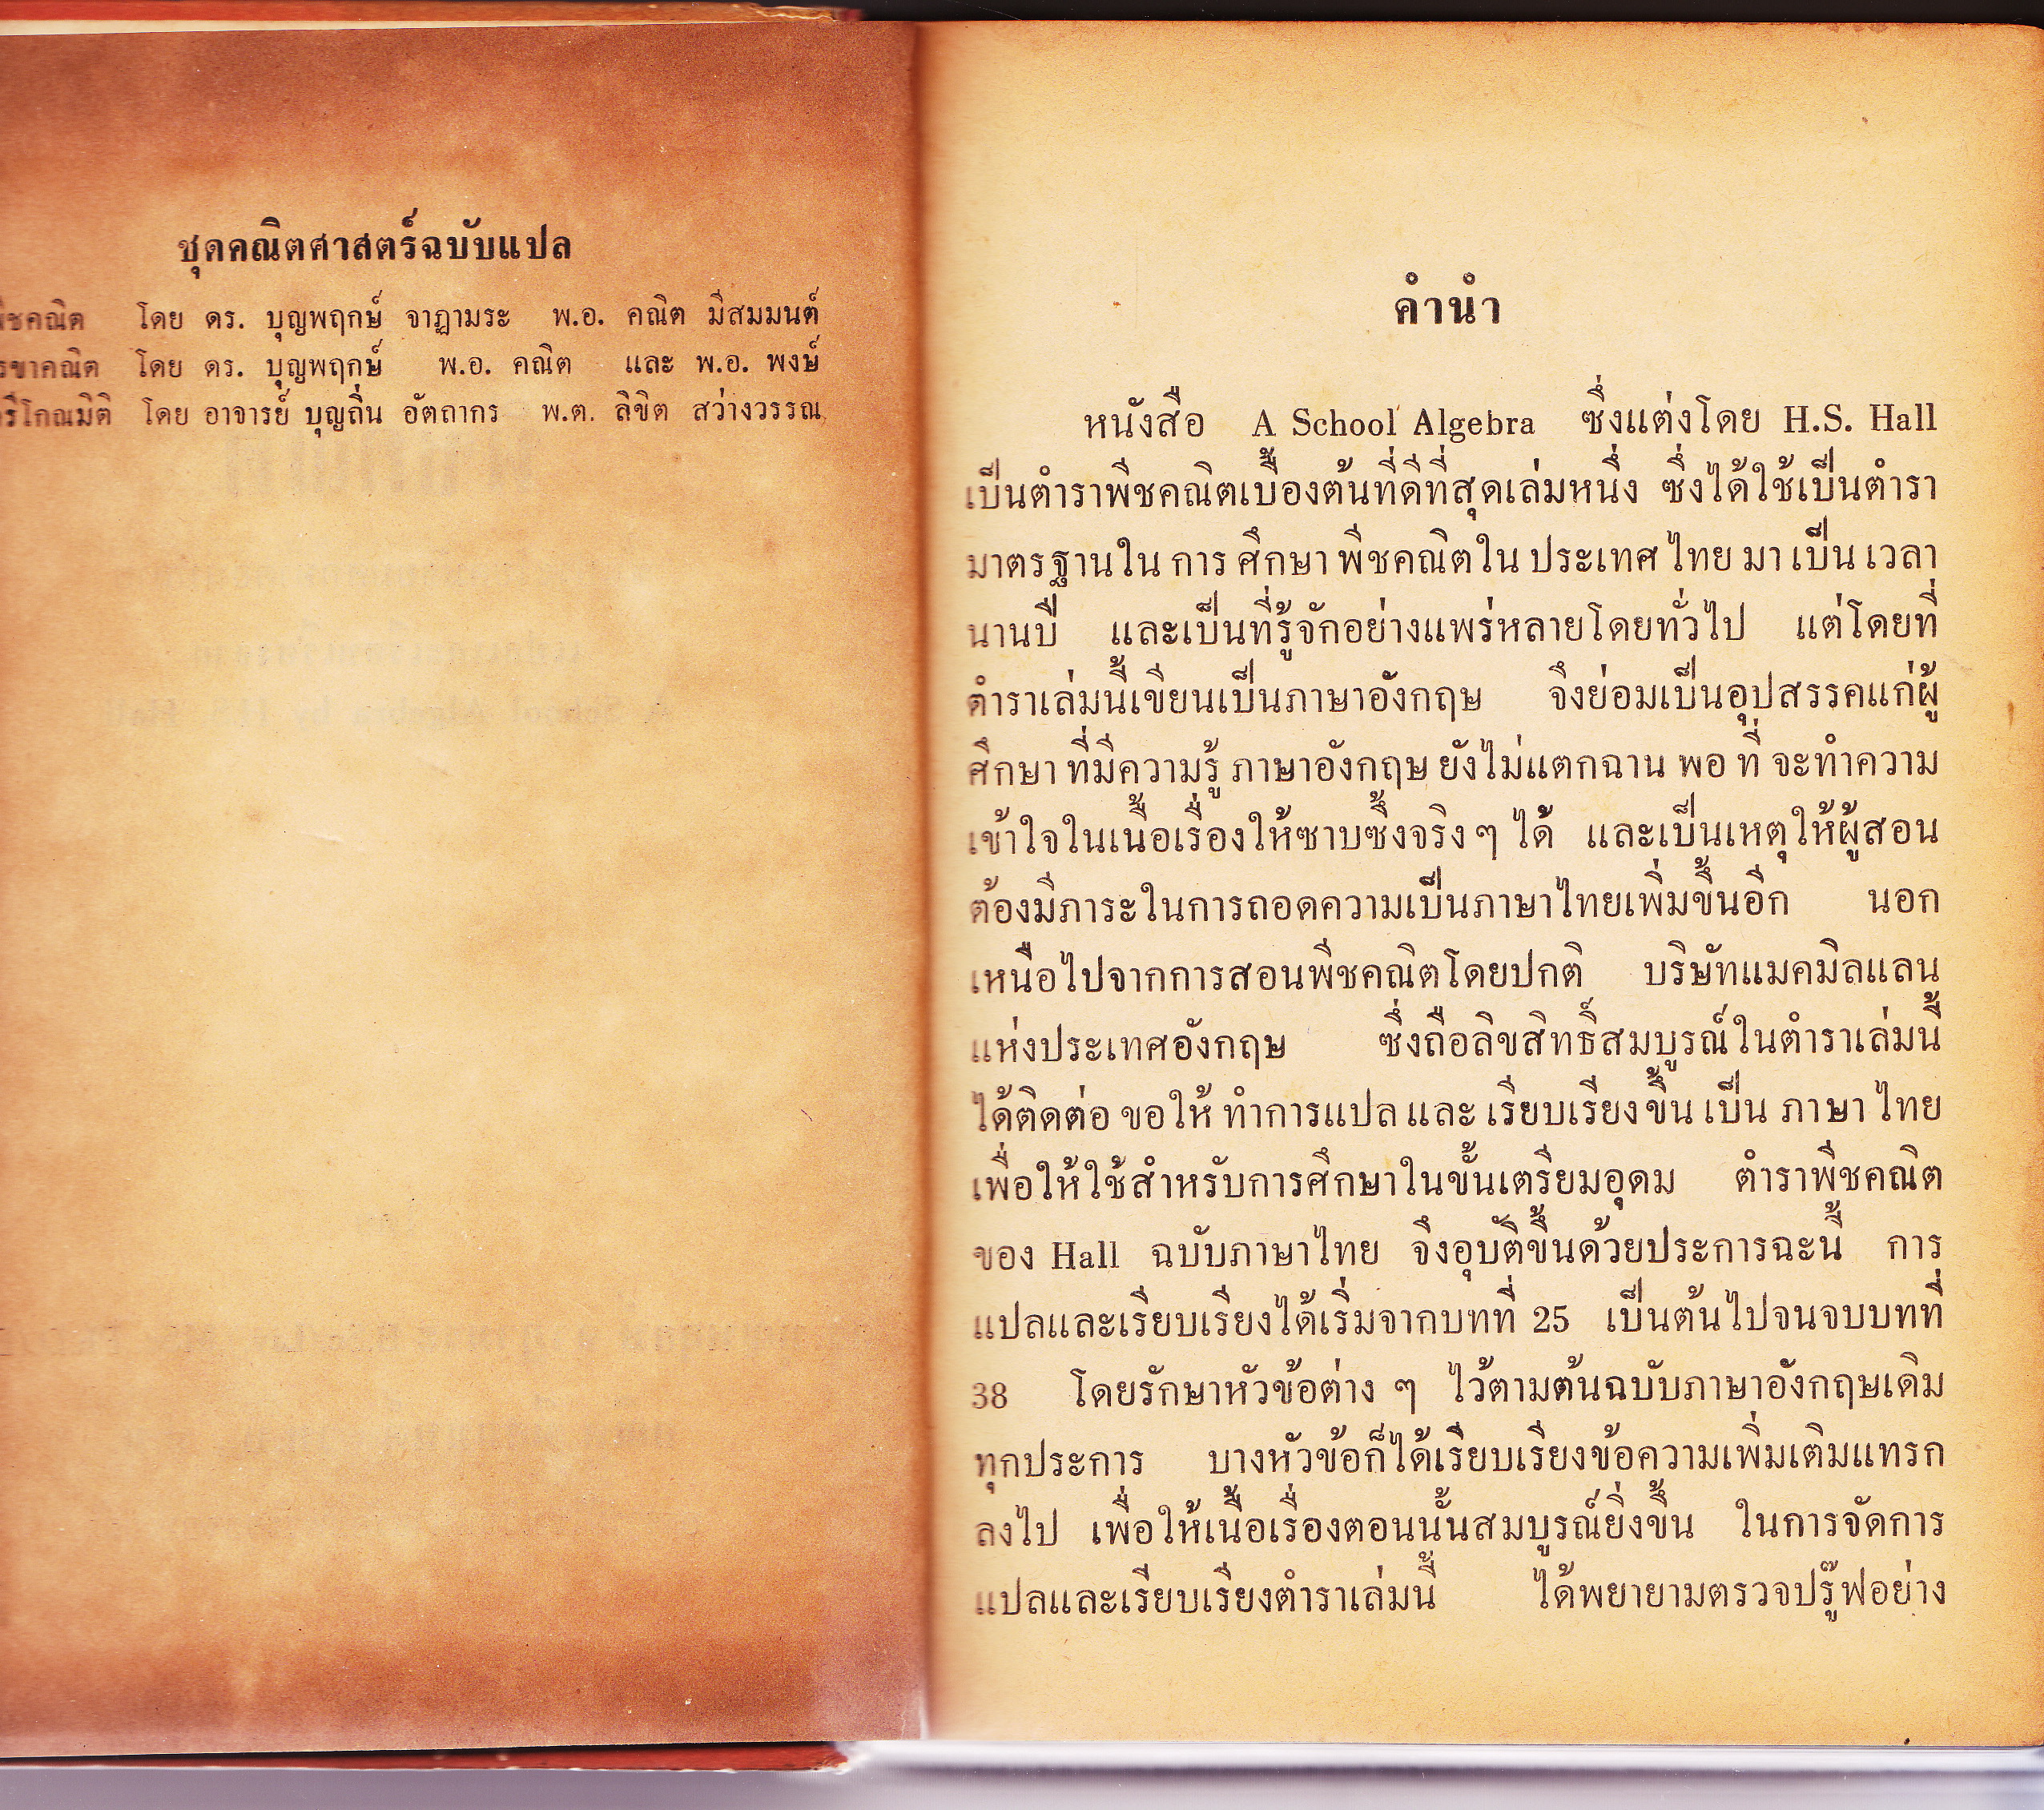 ชุดคณิตศาสตร์ฉบับแปล
พีชคณิต โดย ดร. บุญพฤกษ์ จาฏามระ พ.อ. คณิต มีสมมนต์
เรขาคณิต โดย ดร. บุญพฤกษ์ พ.อ. คณิต และ พ.อ. พงษ์
ตรีโกณมิติ โดย อาจารย์ บุญถิ่น อัตถากร พ.ต. ลิขิต สว่างวรรณ
คำนำ
หนังสือ A School Algebra ซึ่งแต่งโดย H.S. Hall
เป็นตำราพีชคณิตเบื้องต้นที่ดีที่สุดเล่มหนึ่ง ซึ่งได้ใช้เป็นตำรา
มาตรฐานใน การ ศึกษา พีชคณิตใน ประเทศ ไทย มา เป็น เวลา
นานปี และเป็นที่รู้จักอย่างแพร่หลายโดยทั่วไป แต่โดยที่
ตำราเล่มนี้เขียนเป็นภาษาอังกฤษ จึงย่อมเป็นอุปสรรคแก่ผู้
ศึกษา ที่มีความรู้ ภาษาอังกฤษ ยังไม่แตกฉาน พอ ที่ จะทำความ
เข้าใจในเนื้อเรื่องให้ซาบซึ้งจริง ๆ ได้ และเป็นเหตุให้ผู้สอน
ต้องมีภาระในการถอดความเป็นภาษาไทยเพิ่มขึ้นอีก นอก
เหนือไปจากการสอนพีชคณิตโดยปกติ บริษัทแมคมิลแลน
แห่งประเทศอังกฤษ ซึ่งถือลิขสิทธิ์สมบูรณ์ในตำราเล่มนี้
ได้ติดต่อ ขอให้ ทำการแปล และ เรียบเรียง ขึ้น เป็น ภาษา ไทย
เพื่อให้ใช้สำหรับการศึกษาในขั้นเตรียมอุดม ตำราพีชคณิต
ของ Hall ฉบับภาษาไทย จึงอุบัติขึ้นด้วยประการฉะนี้ การ
แปลและเรียบเรียงได้เริ่มจากบทที่ 25 เป็นต้นไปจนจบบทที่
38 โดยรักษาหัวข้อต่าง ๆ ไว้ตามต้นฉบับภาษาอังกฤษเดิม
ทุกประการ บางหัวข้อก็ได้เรียบเรียงข้อความเพิ่มเติมแทรก
ลงไป เพื่อให้เนื้อเรื่องตอนนั้นสมบูรณ์ยิ่งขึ้น ในการจัดการ
แปลและเรียบเรียงตำราเล่มนี้ ได้พยายามตรวจปรู๊ฟอย่าง